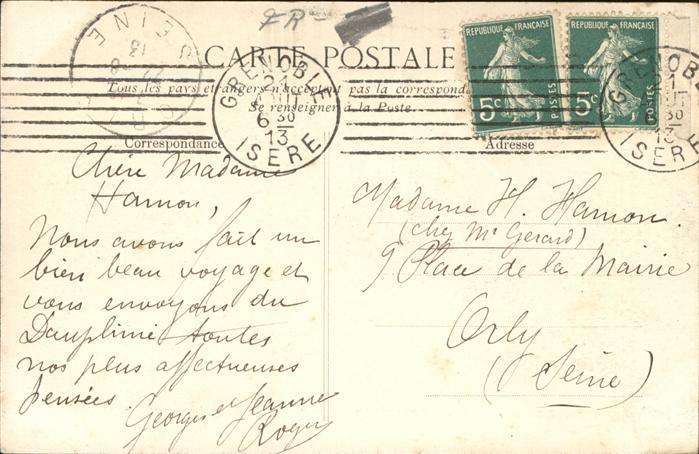 SEINE
13
CARTE POSTALE
Tous les pays étrangers n'acceptent pas la correspond
Se renseigner à la Poste.
Correspondance
Adresse
RÉPUBLIQUE FRANÇAISE
5c
POSTES
RÉPUBLIQUE FRANÇAISE
5c
POSTES
GRENOBLE
6 30
13
ISÈRE
GRENOBLE
13
ISÈRE
Chère Madame
Hamon,
Nous avons fait un
bien beau voyage et
vous envoyons du
Dauphiné toutes
nos plus affectueuses
pensées.
Georges et Jeanne
Roger
Madame H. Hamon.
(chez Mr Gerard)
9 Place de la Mairie
Orly
(Seine)